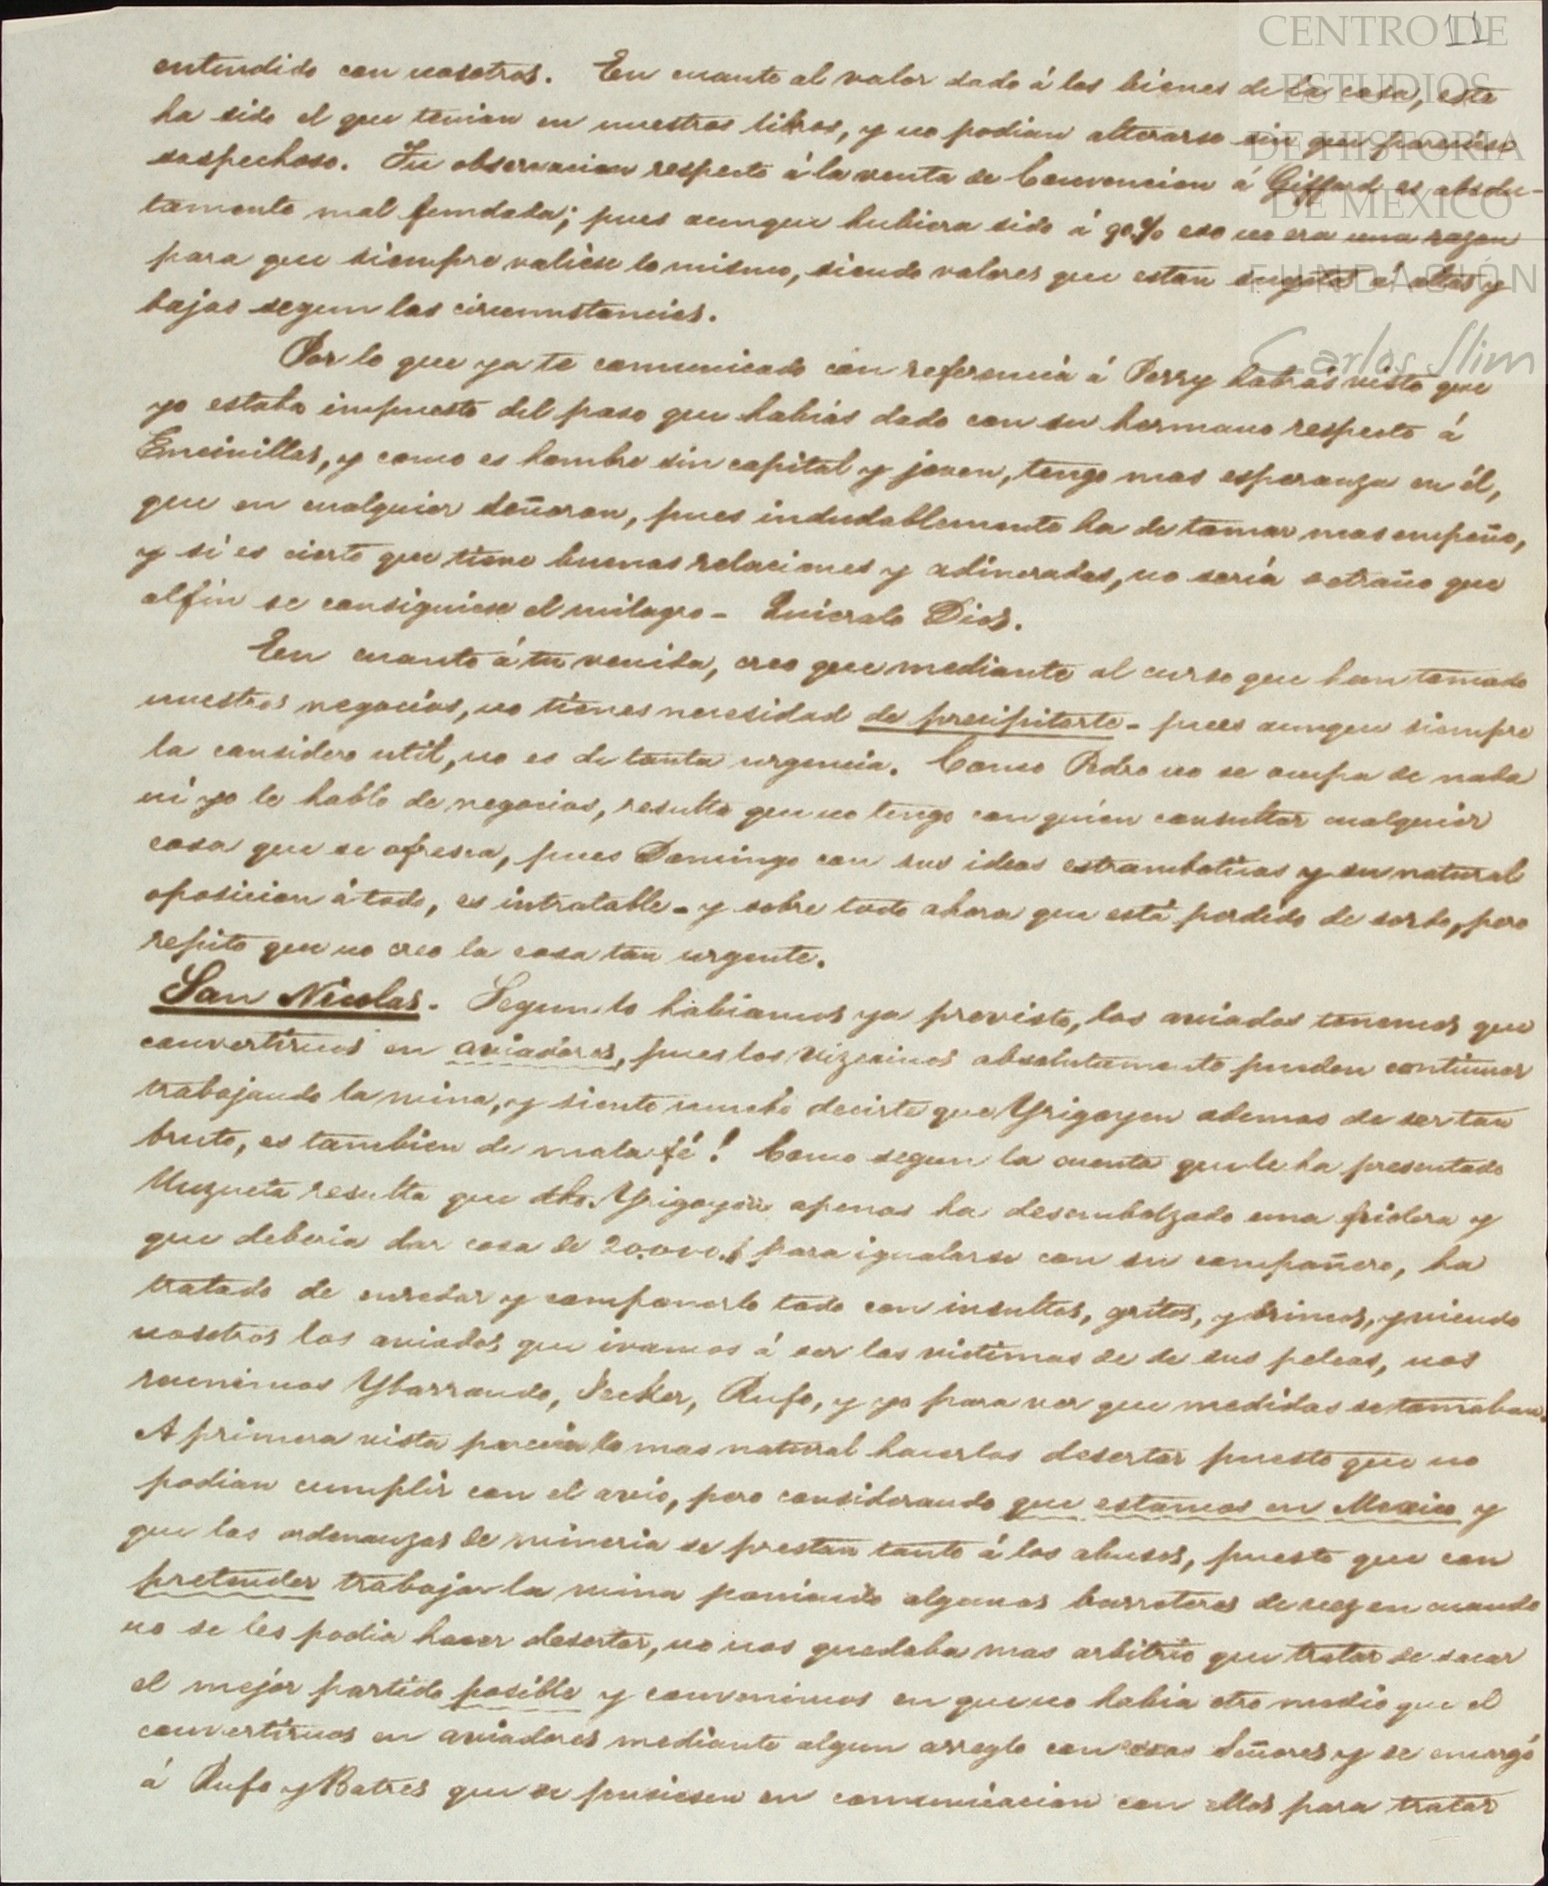 11
CENTRO DE
ESTUDIOS
DE HISTORIA
DE MÉXICO
FUNDACIÓN
Carlos Slim
entendido con nosotros. En cuanto al valor dado á los bienes de la casa, este
ha sido el que tenian en nuestros libros, y no podian alterarse sin que pareciese
sospechoso. Tu observacion respecto á la venta de Convencion á Giffard es absolu-
tamente mal fundada; pues aunque hubiera sido á 90% eso no era una razon
para que siempre valiese lo mismo, siendo valores que estan sugetos á altas y
bajas segun las circunstancias.
Por lo que ya te comunicado con referencia á Perry habrás visto que
yo estaba impuesto del paso que habias dado con su hermano respecto á
Encinillas, y como es hombre sin capital y joven, tengo mas esperanza en él,
que en cualquier señoron, pues indudablemente ha de tomar mas empeño,
y si es cierto que tiene buenas relaciones y adineradas, no seria estraño que
al fin se consiguiese el milagro - Quieralo Dios.
En cuanto á tu venida, creo que mediante al curso que han tomado
nuestros negocios, no tienes necesidad de precipitarte - pues aunque siempre
la considero util, no es de tanta urgencia. Como Pedro no se ocupa de nada
ni yo le hablo de negocios, resulta que no tengo con quien consultar cualquier
cosa que se ofresca, pues Domingo con sus ideas estramboticas y su natural
oposicion á todo, es intratable - y sobre todo ahora que está perdido de sordo, pero
repito que no creo la cosa tan urgente.
San Nicolas. Segun lo habiamos ya previsto, los aviados tenemos que
convertirnos en aviadores, pues los vizcainos absolutamente pueden continuar
trabajando la mina, y siento mucho decirte que Yrigoyen ademas de ser tan
bruto, es tambien de mala fé! Como segun la cuenta que le ha presentado
Muzqueta resulta que dho. Yrigoyen apenas ha desembolzado una friolera y
que deberia dar cosa de 20.000.$ para igualarse con su compañero, ha
tratado de enredar y componerlo todo con insultos, gritos, y brincos, y viendo
nosotros los aviados que ivamos á ser las victimas de de sus peleas, nos
reunimos Ybarrondo, Jecker, Rufo, y yo para ver que medidas se tomaban.
A primera vista parecia lo mas natural hacerlos desertar puesto que no
podian cumplir con el avio, pero considerando que estamos en Mexico y
que las ordenanzas de mineria se prestan tanto á los abusos, puesto que con
pretender trabajar la mina poniendo algunos barreteros de vez en cuando
no se les podia hacer desertar, no nos quedaba mas arbitrio que tratar de sacar
el mejor partido posible y convenimos en que no habia otro medio que el
convertirnos en aviadores mediante algun arreglo con esos Señores y se encargó
á Rufo y Batres que se pusiesen en comunicacion con ellos para tratar